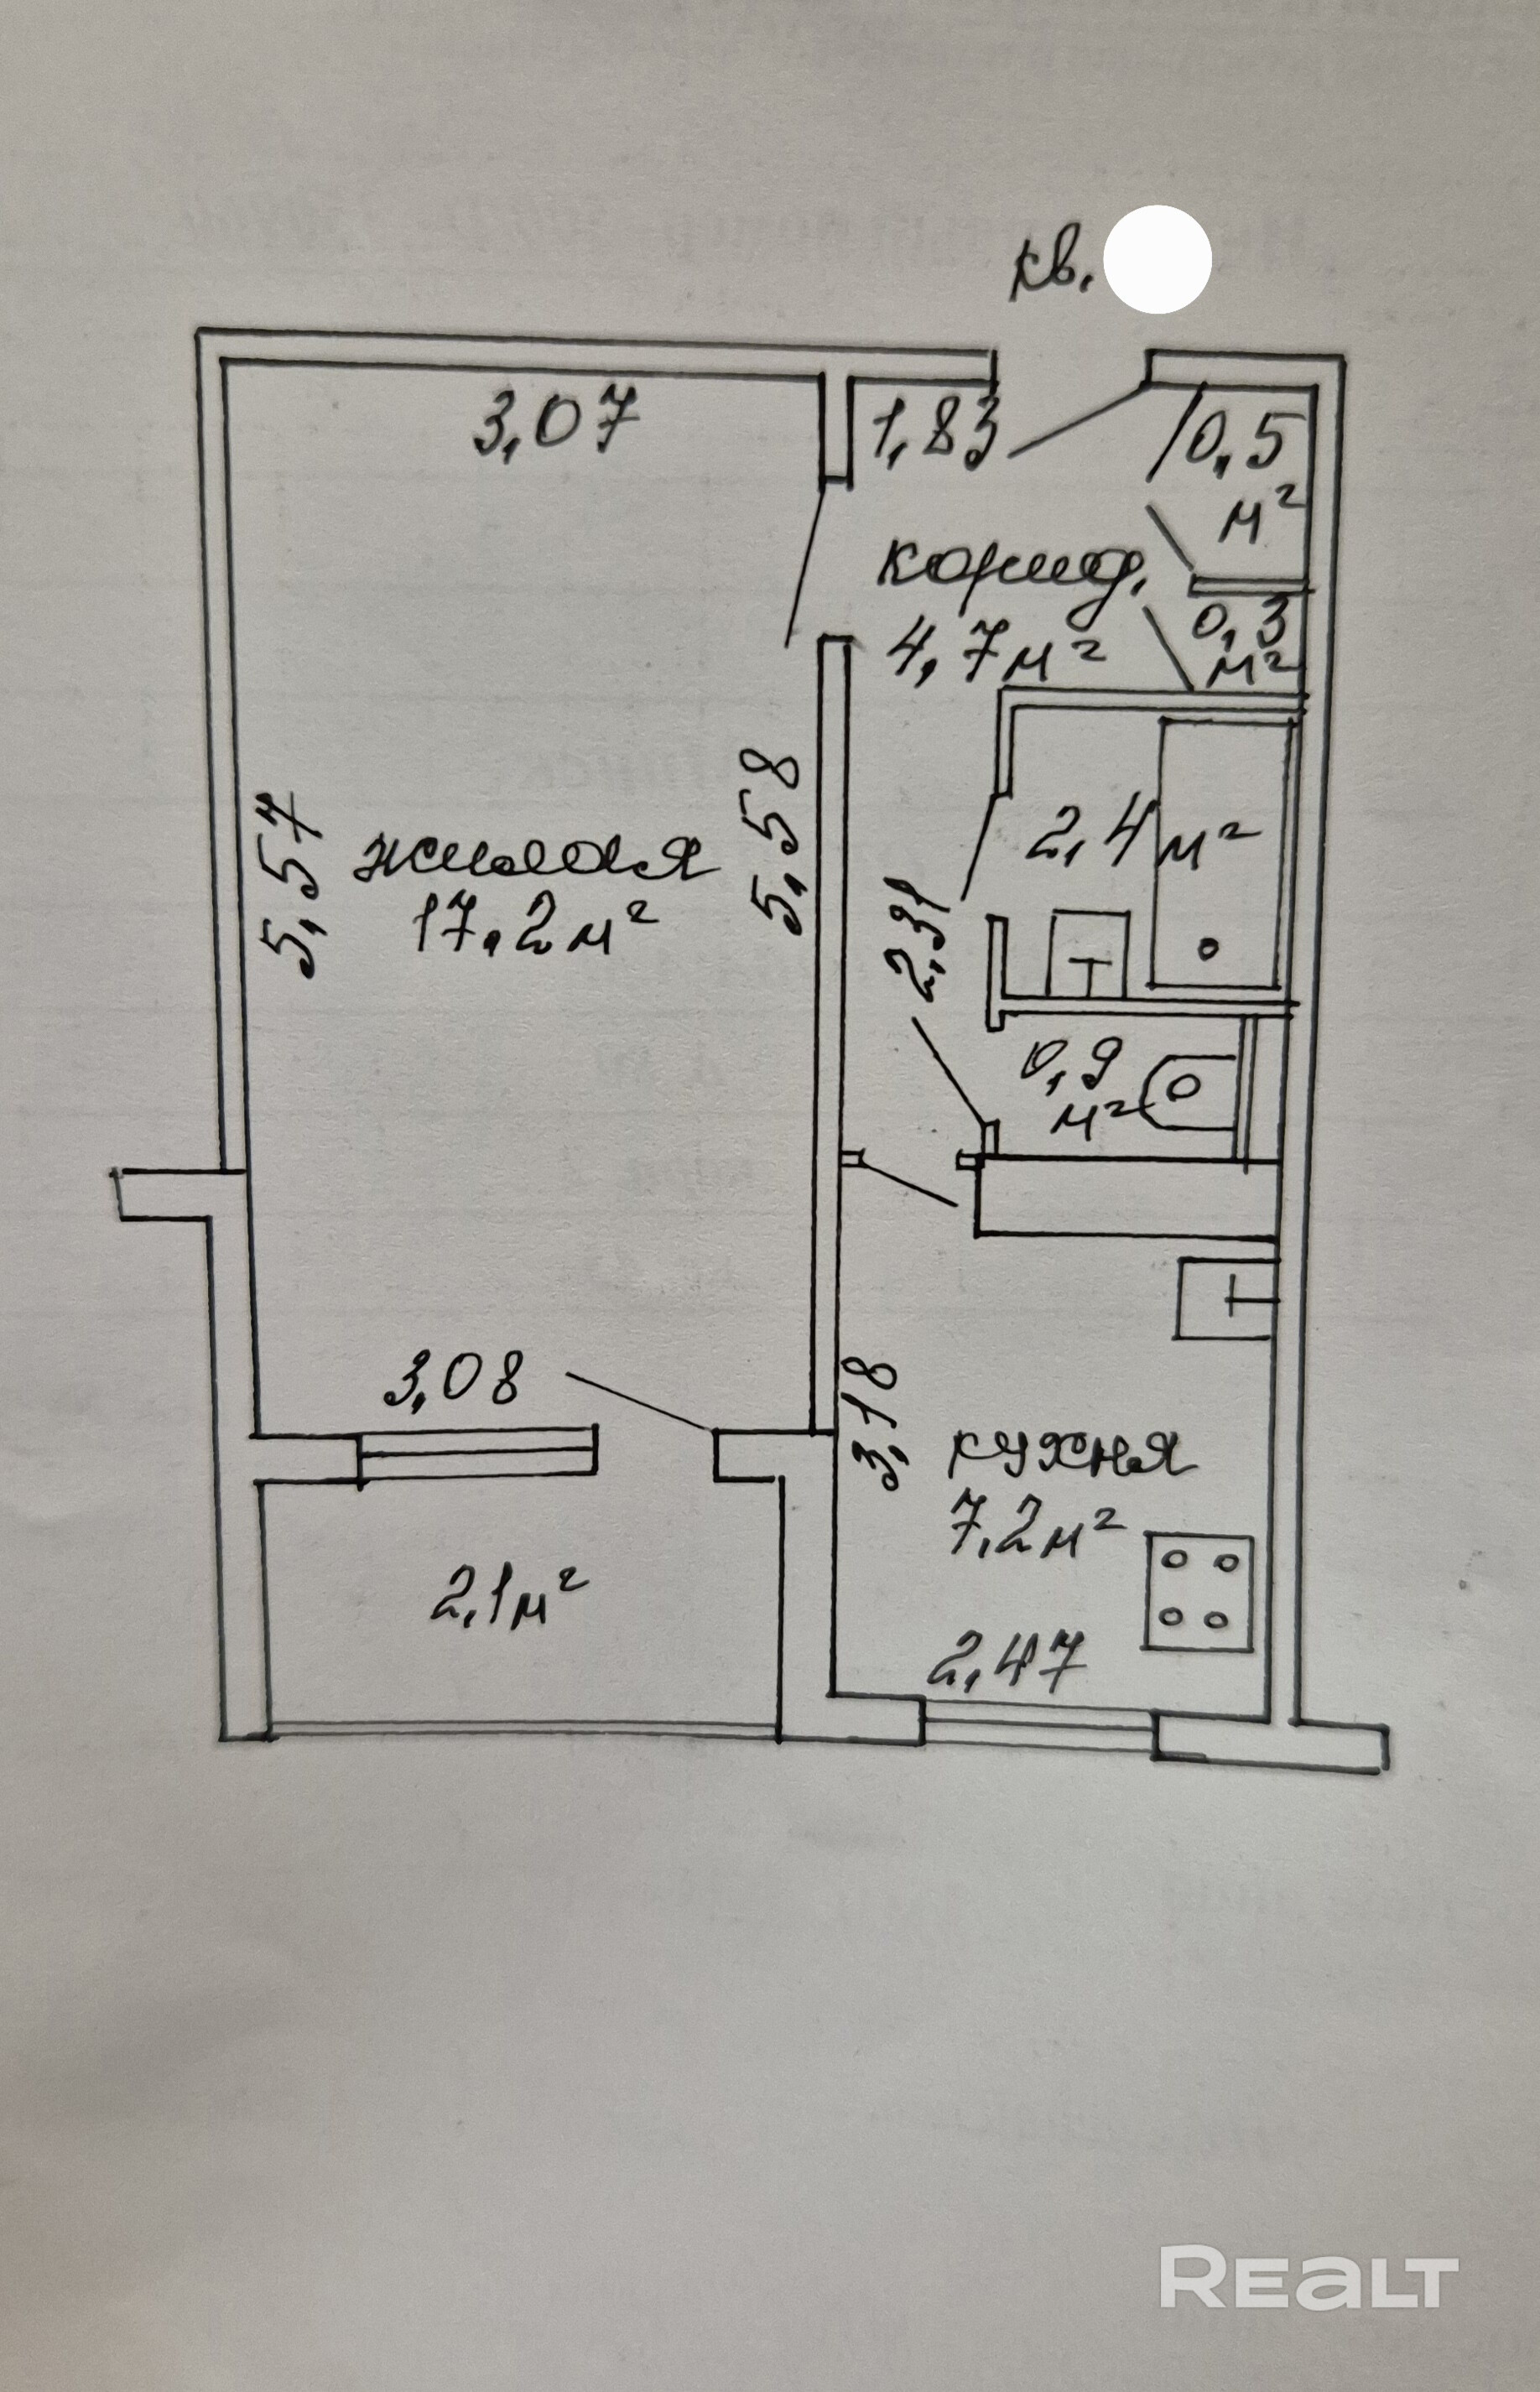 кв.
3,07
1,83
0,5
м²
корид.
4,7м²
0,3
м²
5,57
жилая
17,2м²
5,58
2,4м²
2,31
0,9
м²
3,08
3,18
кухня
7,2м²
2,1м²
2,47
REALT